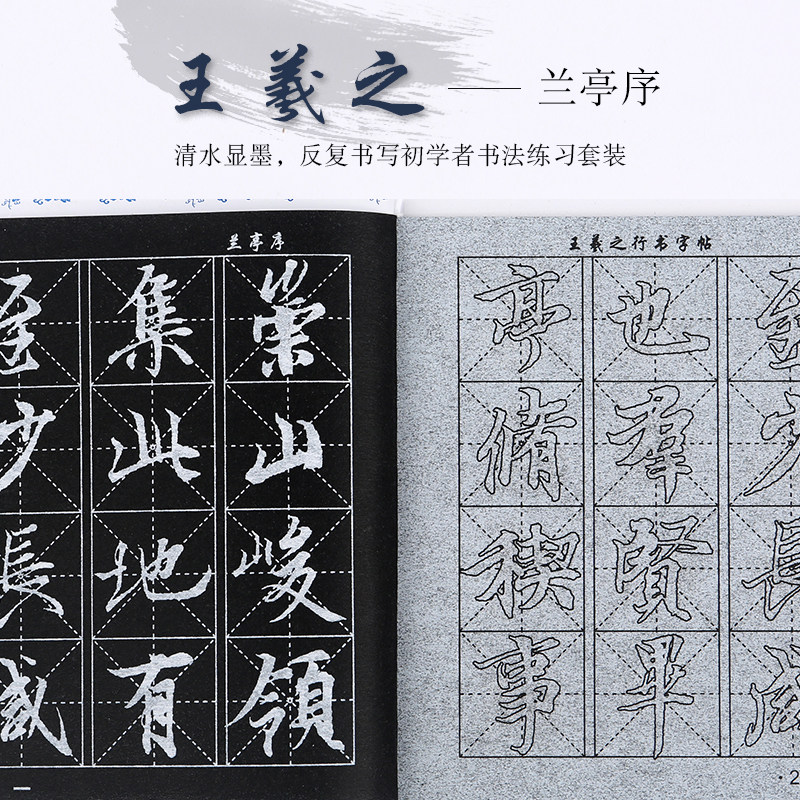 王羲之——兰亭序
清水显墨，反复书写初学者书法练习套装
兰亭序
至少長咸
集此地有
崇山峻領
王羲之行书字帖
亭脩禊事
也群賢畢
至少長咸
·2